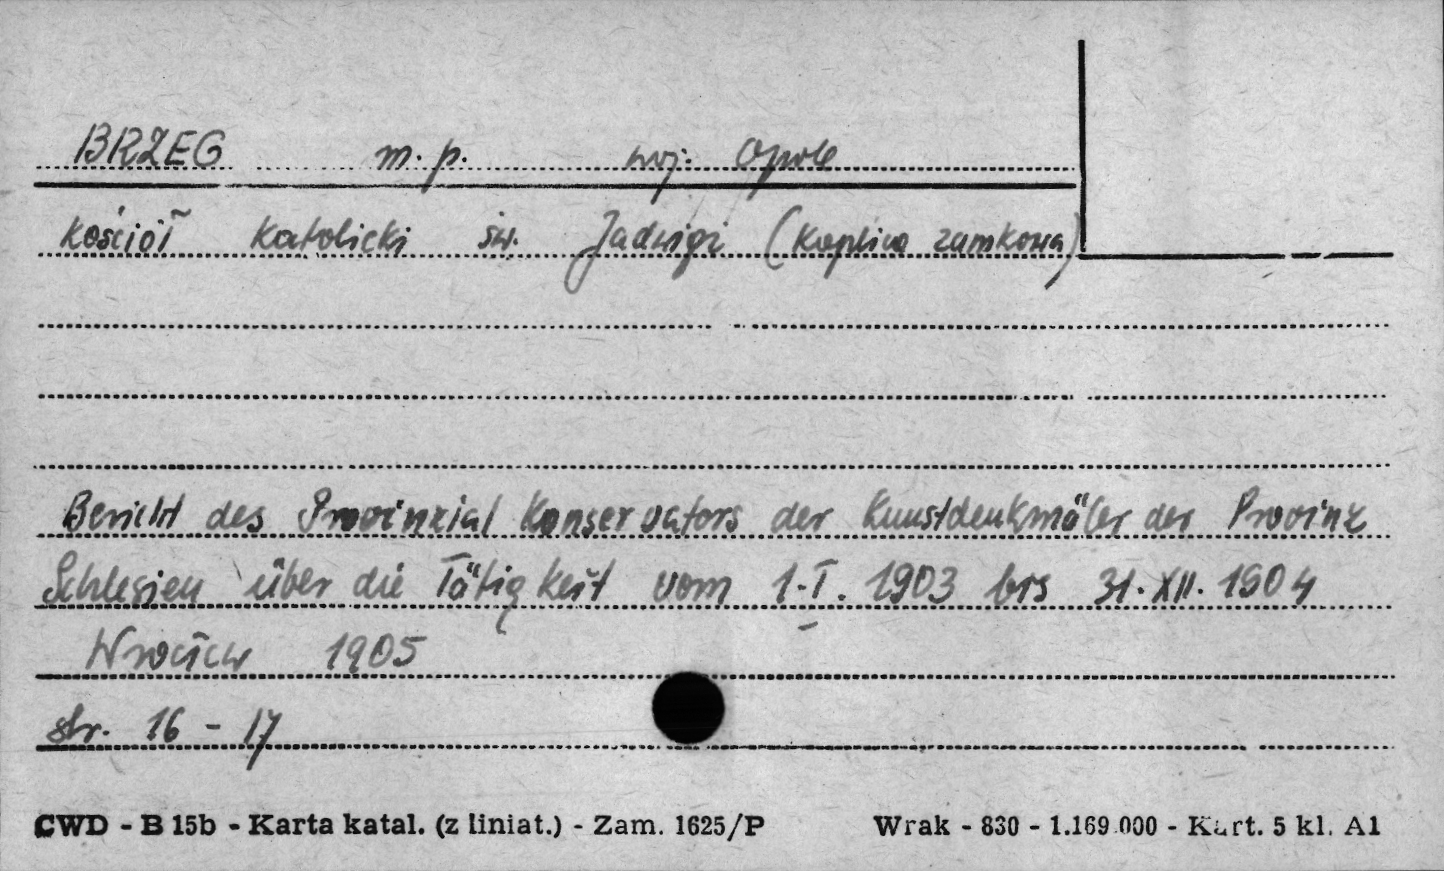 BRZEG m. p. woj. Opole
kościół katolicki św. Jadwigi (kaplica zamkowa)
Bericht des Provinzial Konservators der Kunstdenkmäler der Provinz
Schlesien über die Tätigkeit vom 1.I. 1903 bis 31.XII. 1904
Wrocław 1905
str. 16 - 17
CWD - B 15b - Karta katal. (z liniat.) - Zam. 1625/P Wrak - 830 - 1.169.000 - Kart. 5 kl. A1